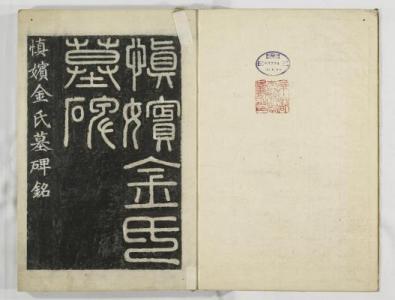 慎嬪金氏
墓碑
慎嬪金氏墓碑銘